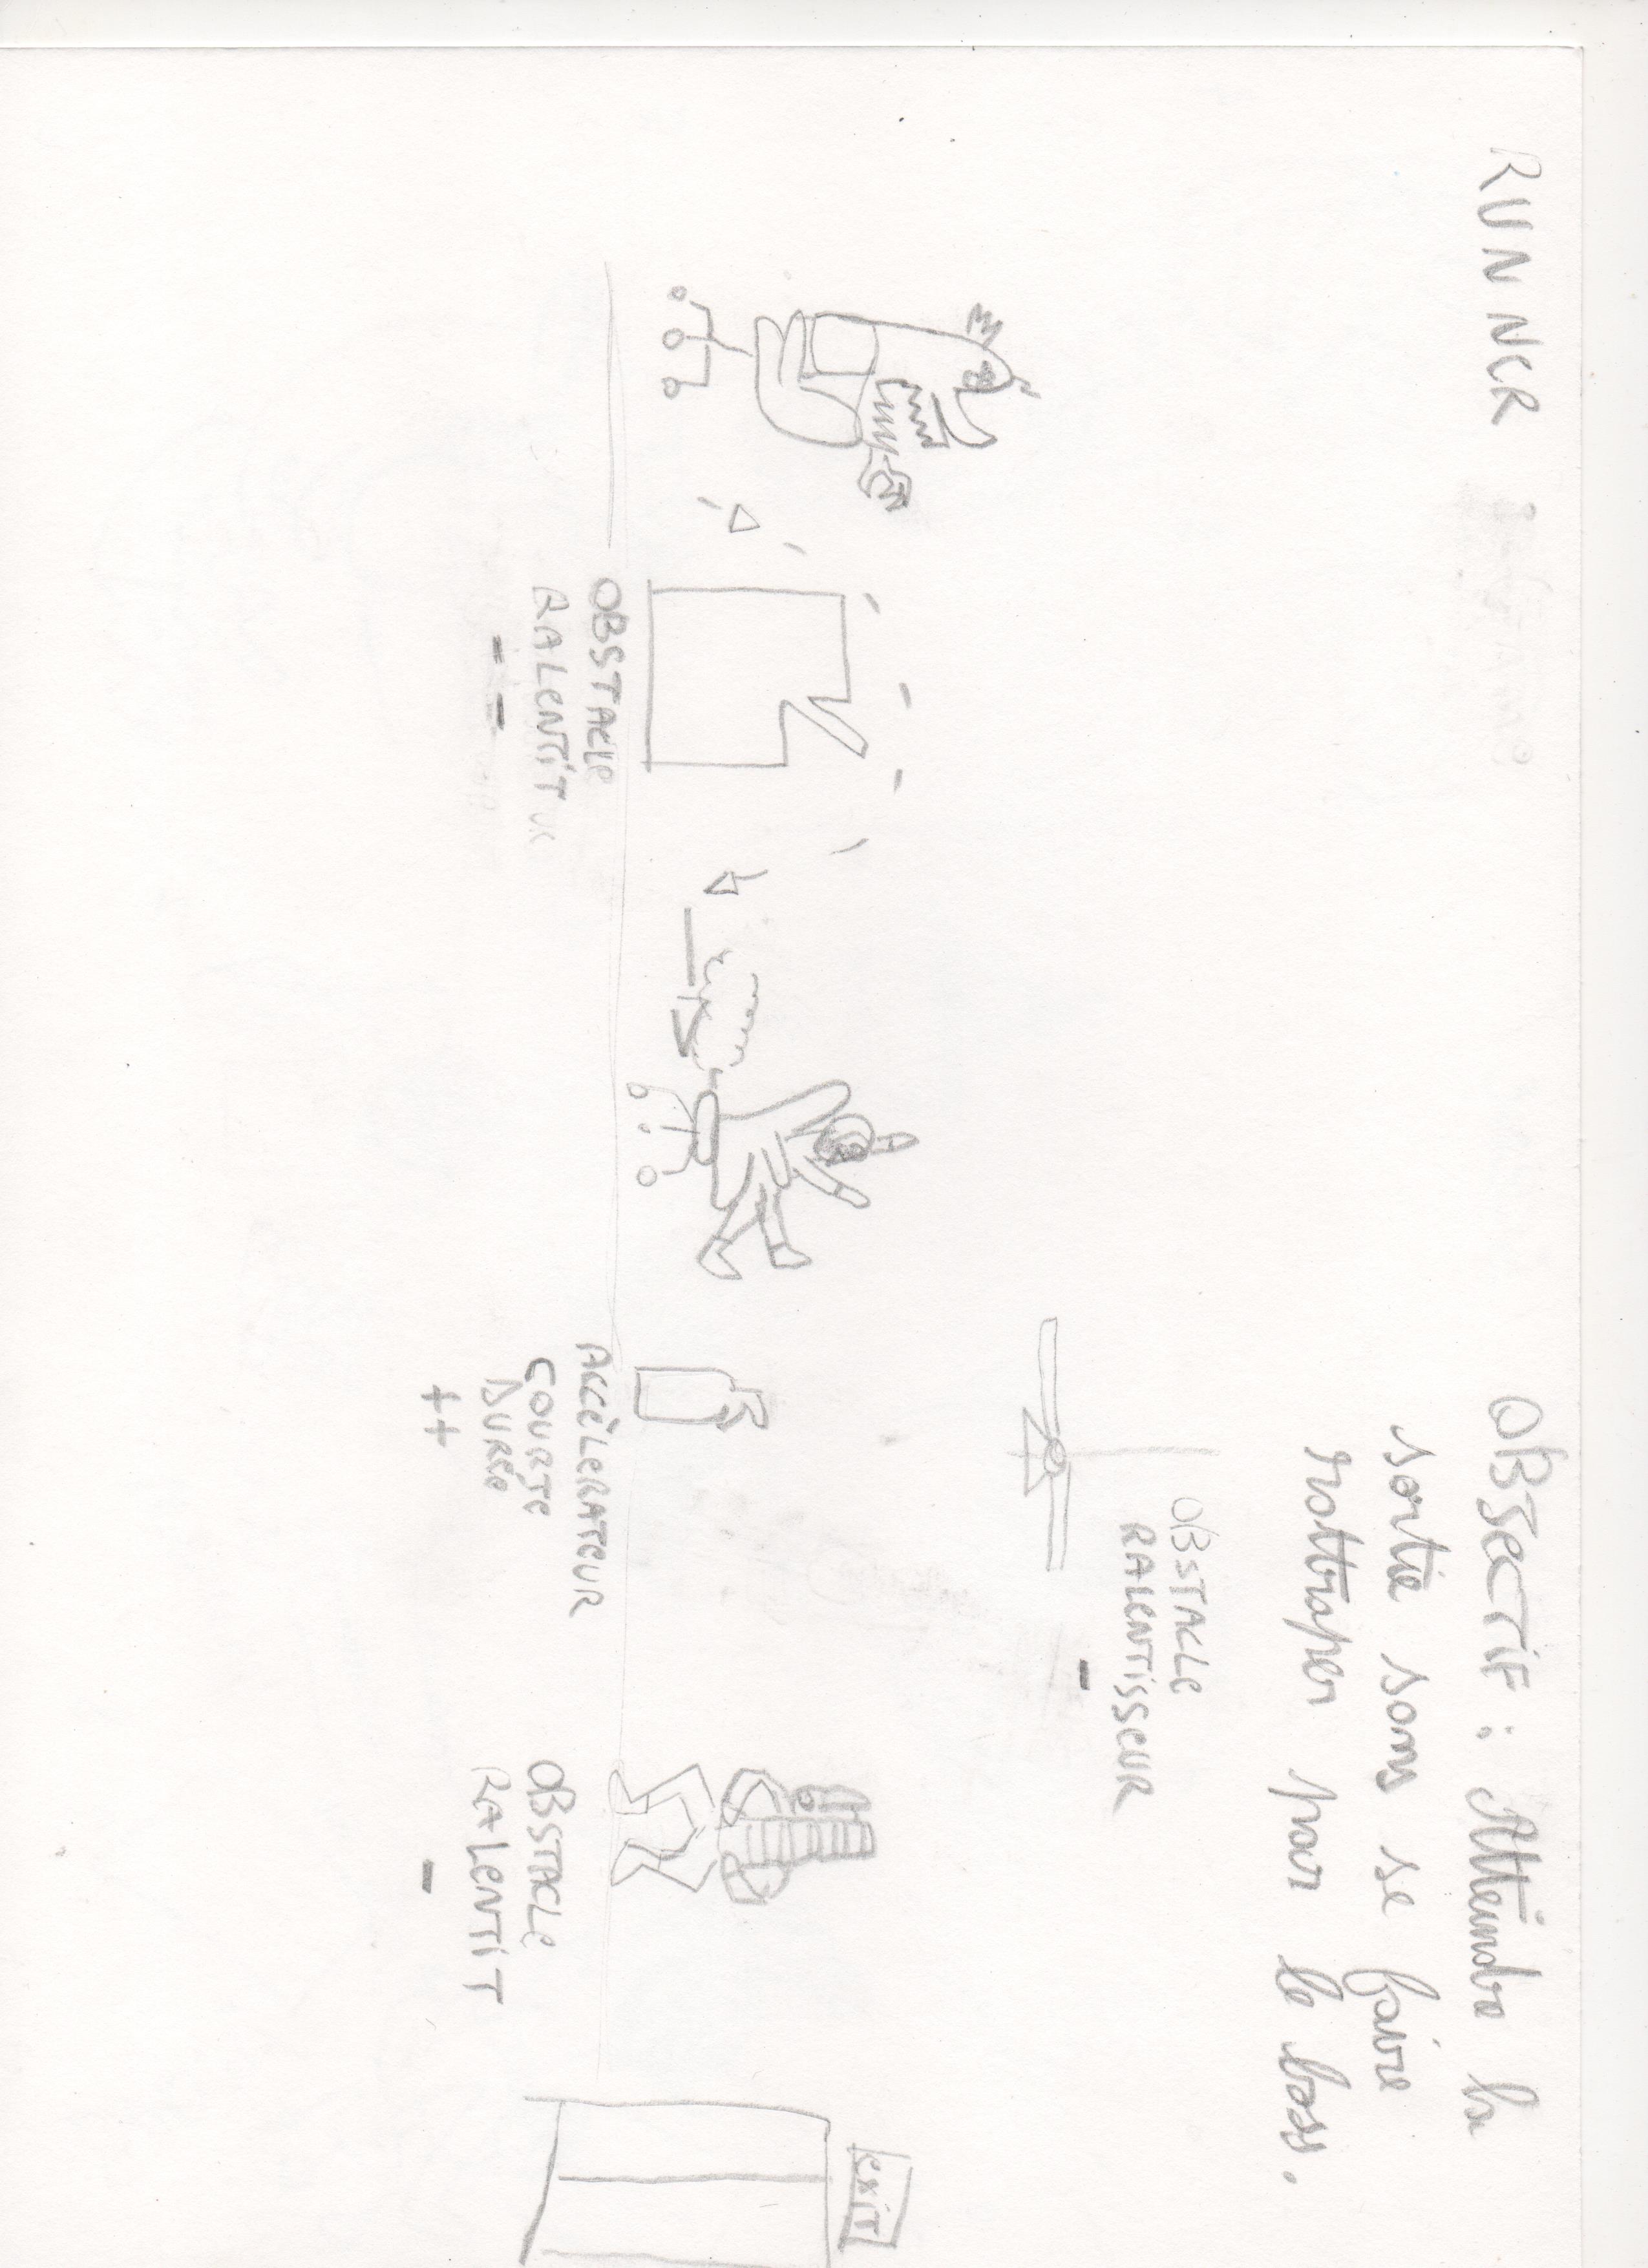 RUNNER
OBJECTIF : Atteindre la
sortie sans se faire
rattraper par le boss.
OBSTACLE
RALENTISSEUR
-
EXIT
OBSTACLE
RALENTIT
- -
ACCÉLERATEUR
COURTE
DURÉE
++
OBSTACLE
RALENTIT
-